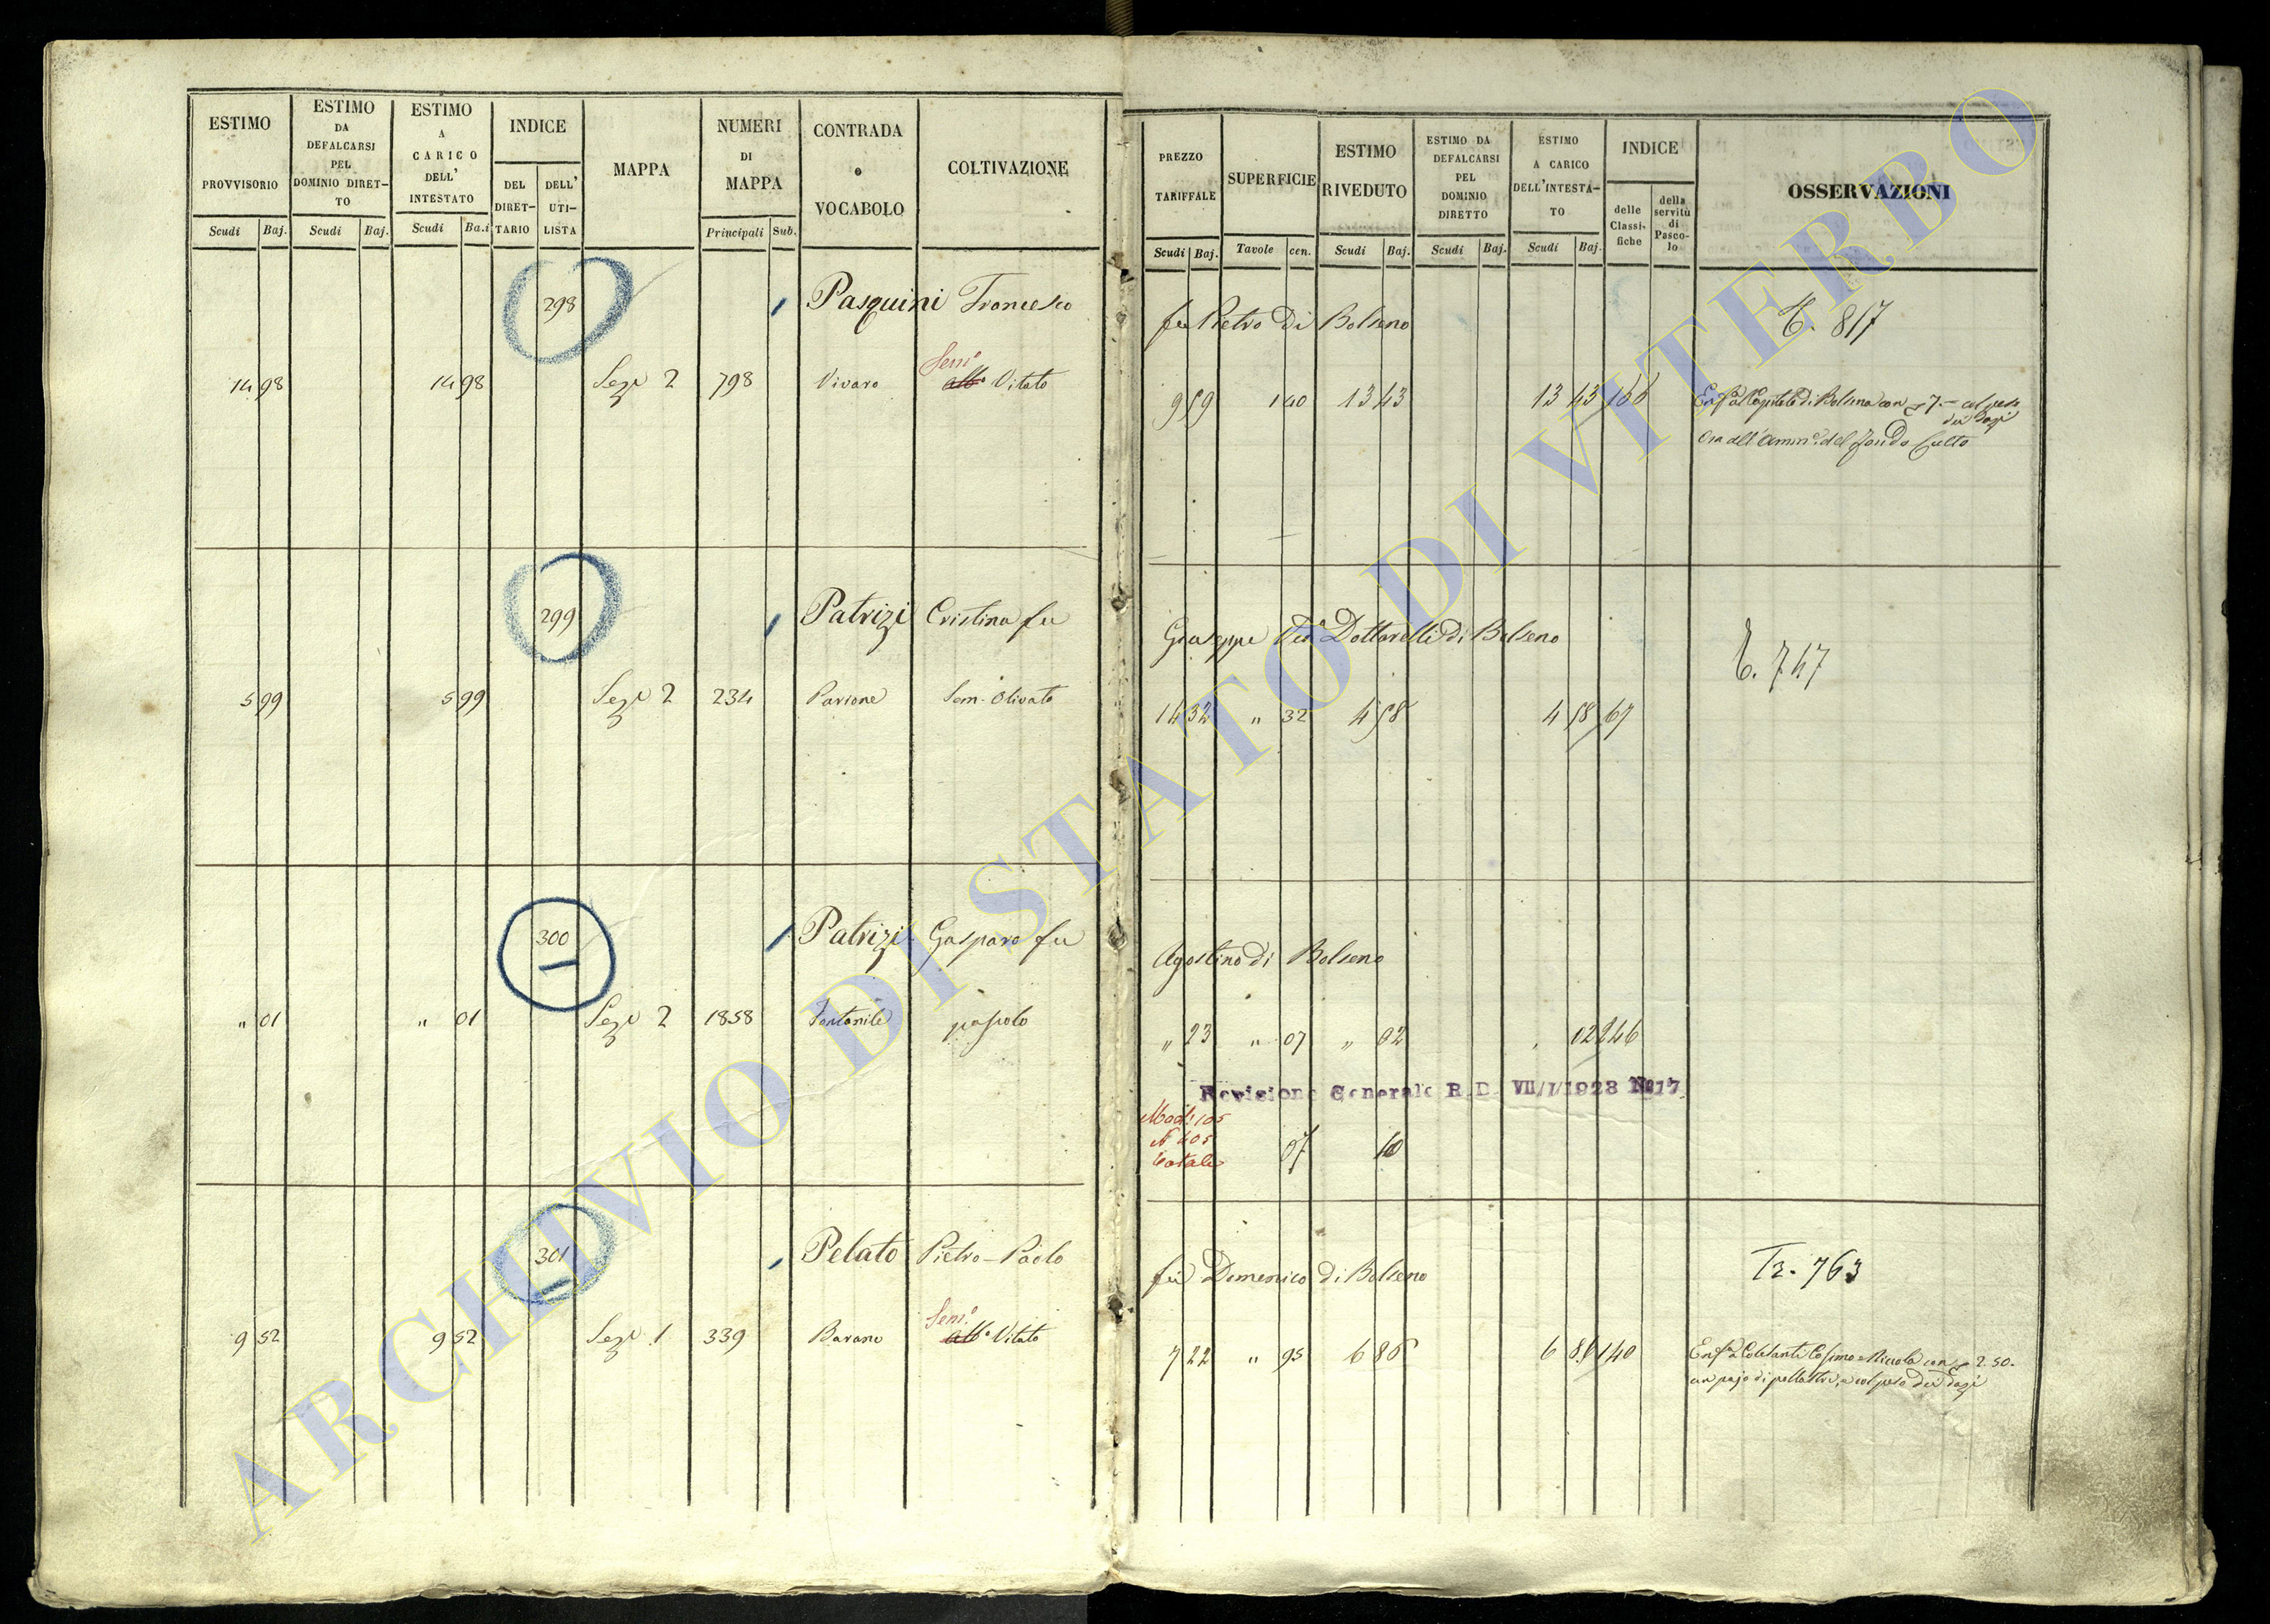 ESTIMO PROVVISORIO
ESTIMO DA DEFALCARSI PEL DOMINIO DIRET-TO
ESTIMO A CARICO DELL' INTESTATO
INDICE
DEL DIRET-TARIO
DELL' UTI-LISTA
MAPPA
NUMERI DI MAPPA
CONTRADA o VOCABOLO
COLTIVAZIONE
Scudi Baj. Scudi Baj. Scudi Ba.i Principali Sub.
PREZZO TARIFFALE
SUPERFICIE
ESTIMO RIVEDUTO
ESTIMO DA DEFALCARSI PEL DOMINIO DIRETTO
ESTIMO A CARICO DELL'INTESTA-TO
INDICE
delle Classi-fiche
della servitù di Pasco-lo
OSSERVAZIONI
Scudi Baj. Tavole cen. Scudi Baj. Scudi Baj. Scudi Baj.
298 Pasquini Francesco fu Pietro di Bolseno 817
Sem.º
14 98 14 98 Sezе 2 798 Vivaro Vitato 9 59 1 40 13 43 13 43 166 col peso
dei Dazi
Ora all' Ammne. del Fondo Culto
299 Patrizi Cristina fu Giuseppe Ved. Dottarelli di Bolseno
747
5 99 5 99 Seze 2 234 Parione Sem. Olivato 14 32 " 32 4 58 4 58 67
300 Patrizi Gasparo fu Agostino di Bolseno
" 01 " 01 Seze 2 1858 Fontanile pascolo " 23 " 07 " 02 02 246
Revisione Generale R.D. VII/1/1928 No 17
Mod. 105
N 405
Totale 07 10
301 Pelato Pietro-Paolo fu Domenico di Bolseno Tr. 763
Sem.º
9 52 9 52 Seze 1 339 Barano Vitato 7 22 " 95 6 86 6 86 140 2.50.
un pajo di pollastri, e col peso dei dazi
ARCHIVIO DI STATO DI VITERBO